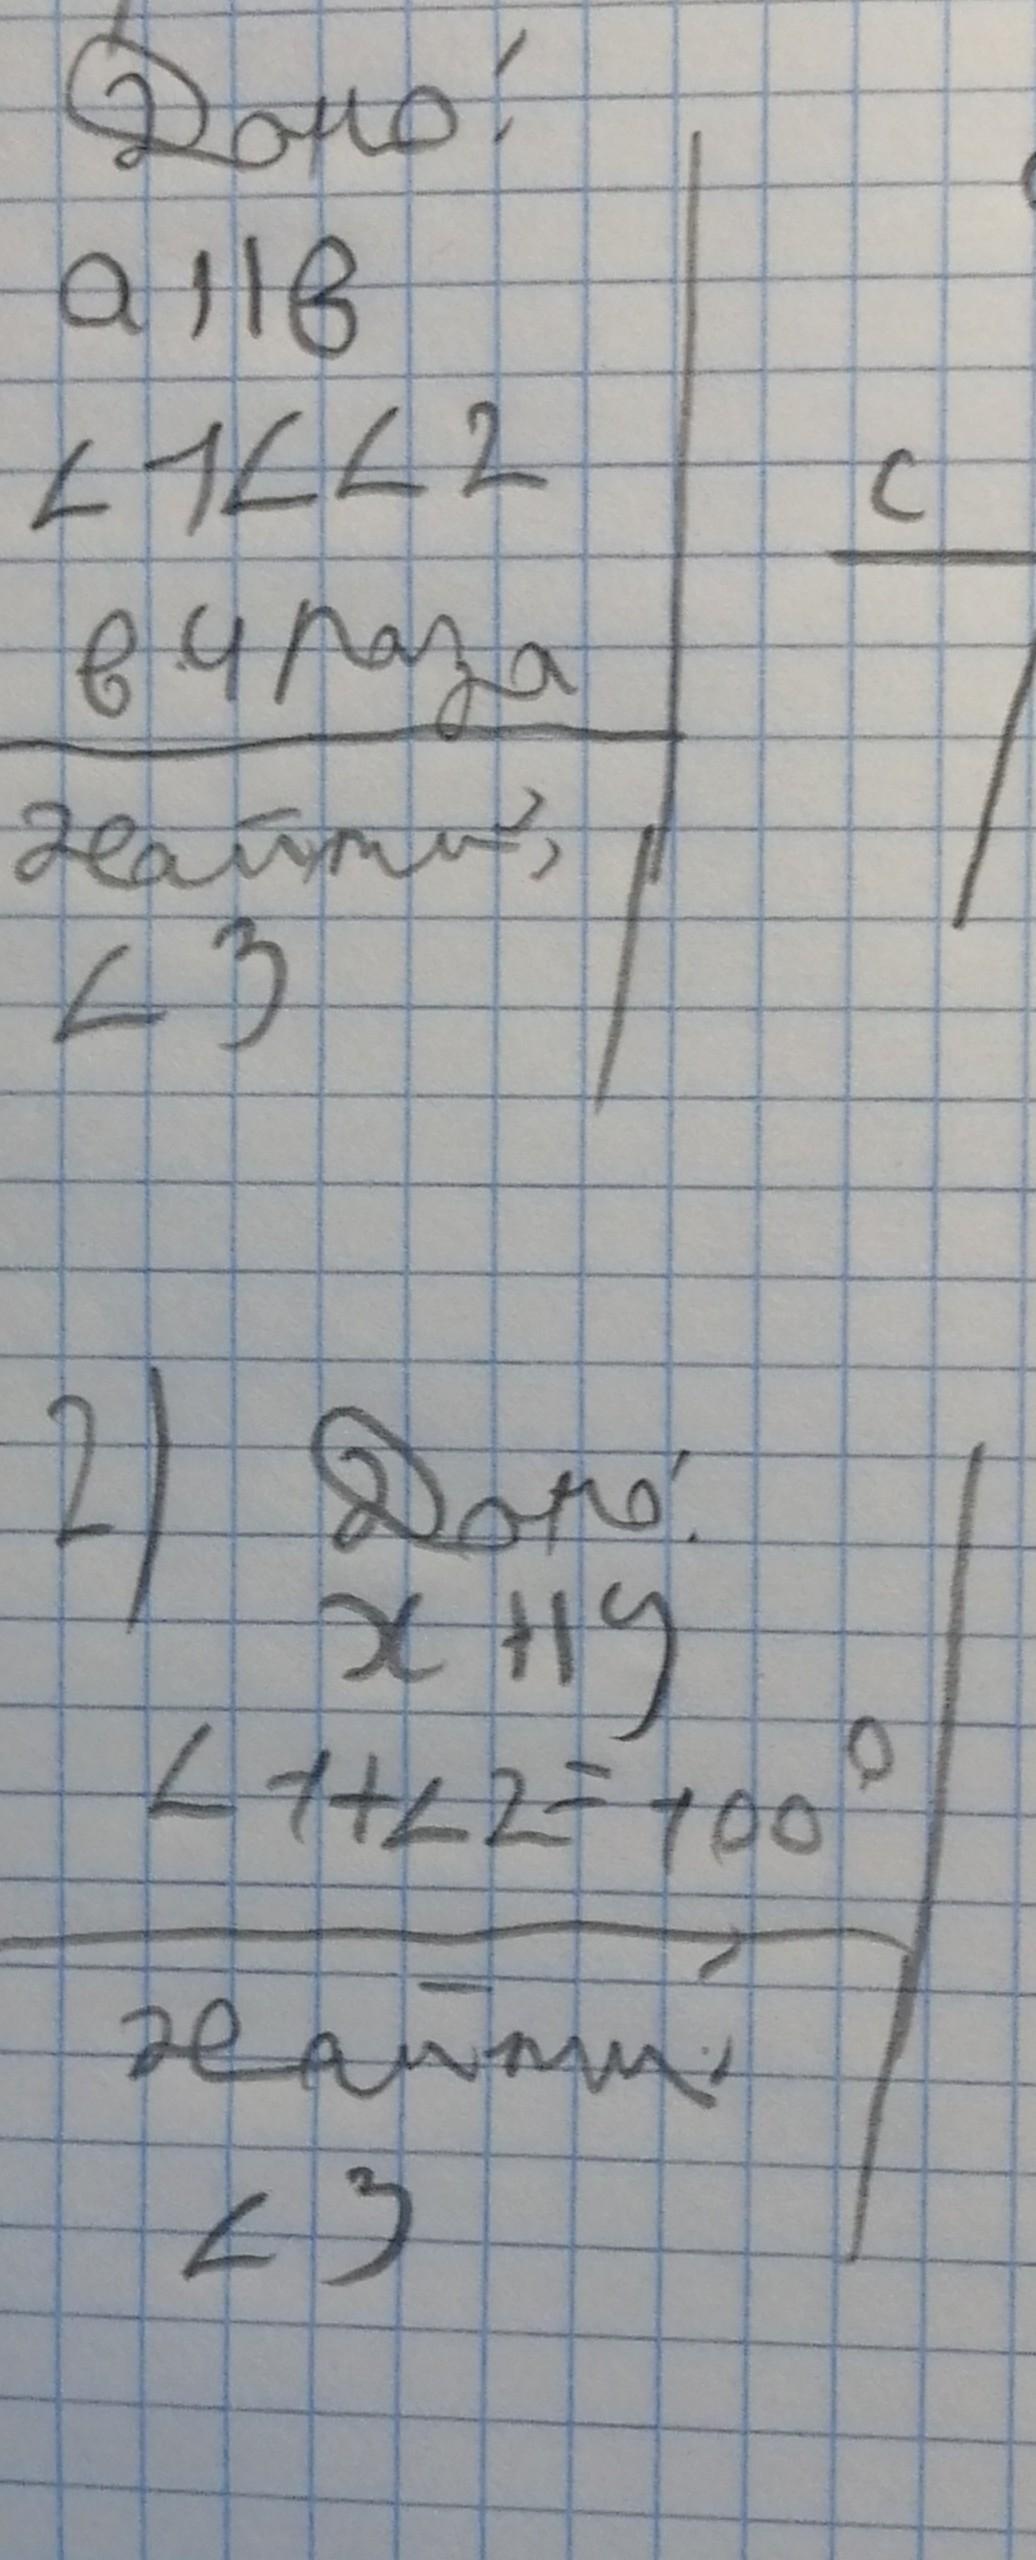 Дано:
a || b
∠1 < ∠2
в 4 раза
найти:
∠3
c
2) Дано:
x || y
∠1+∠2=100°
найти:
∠3